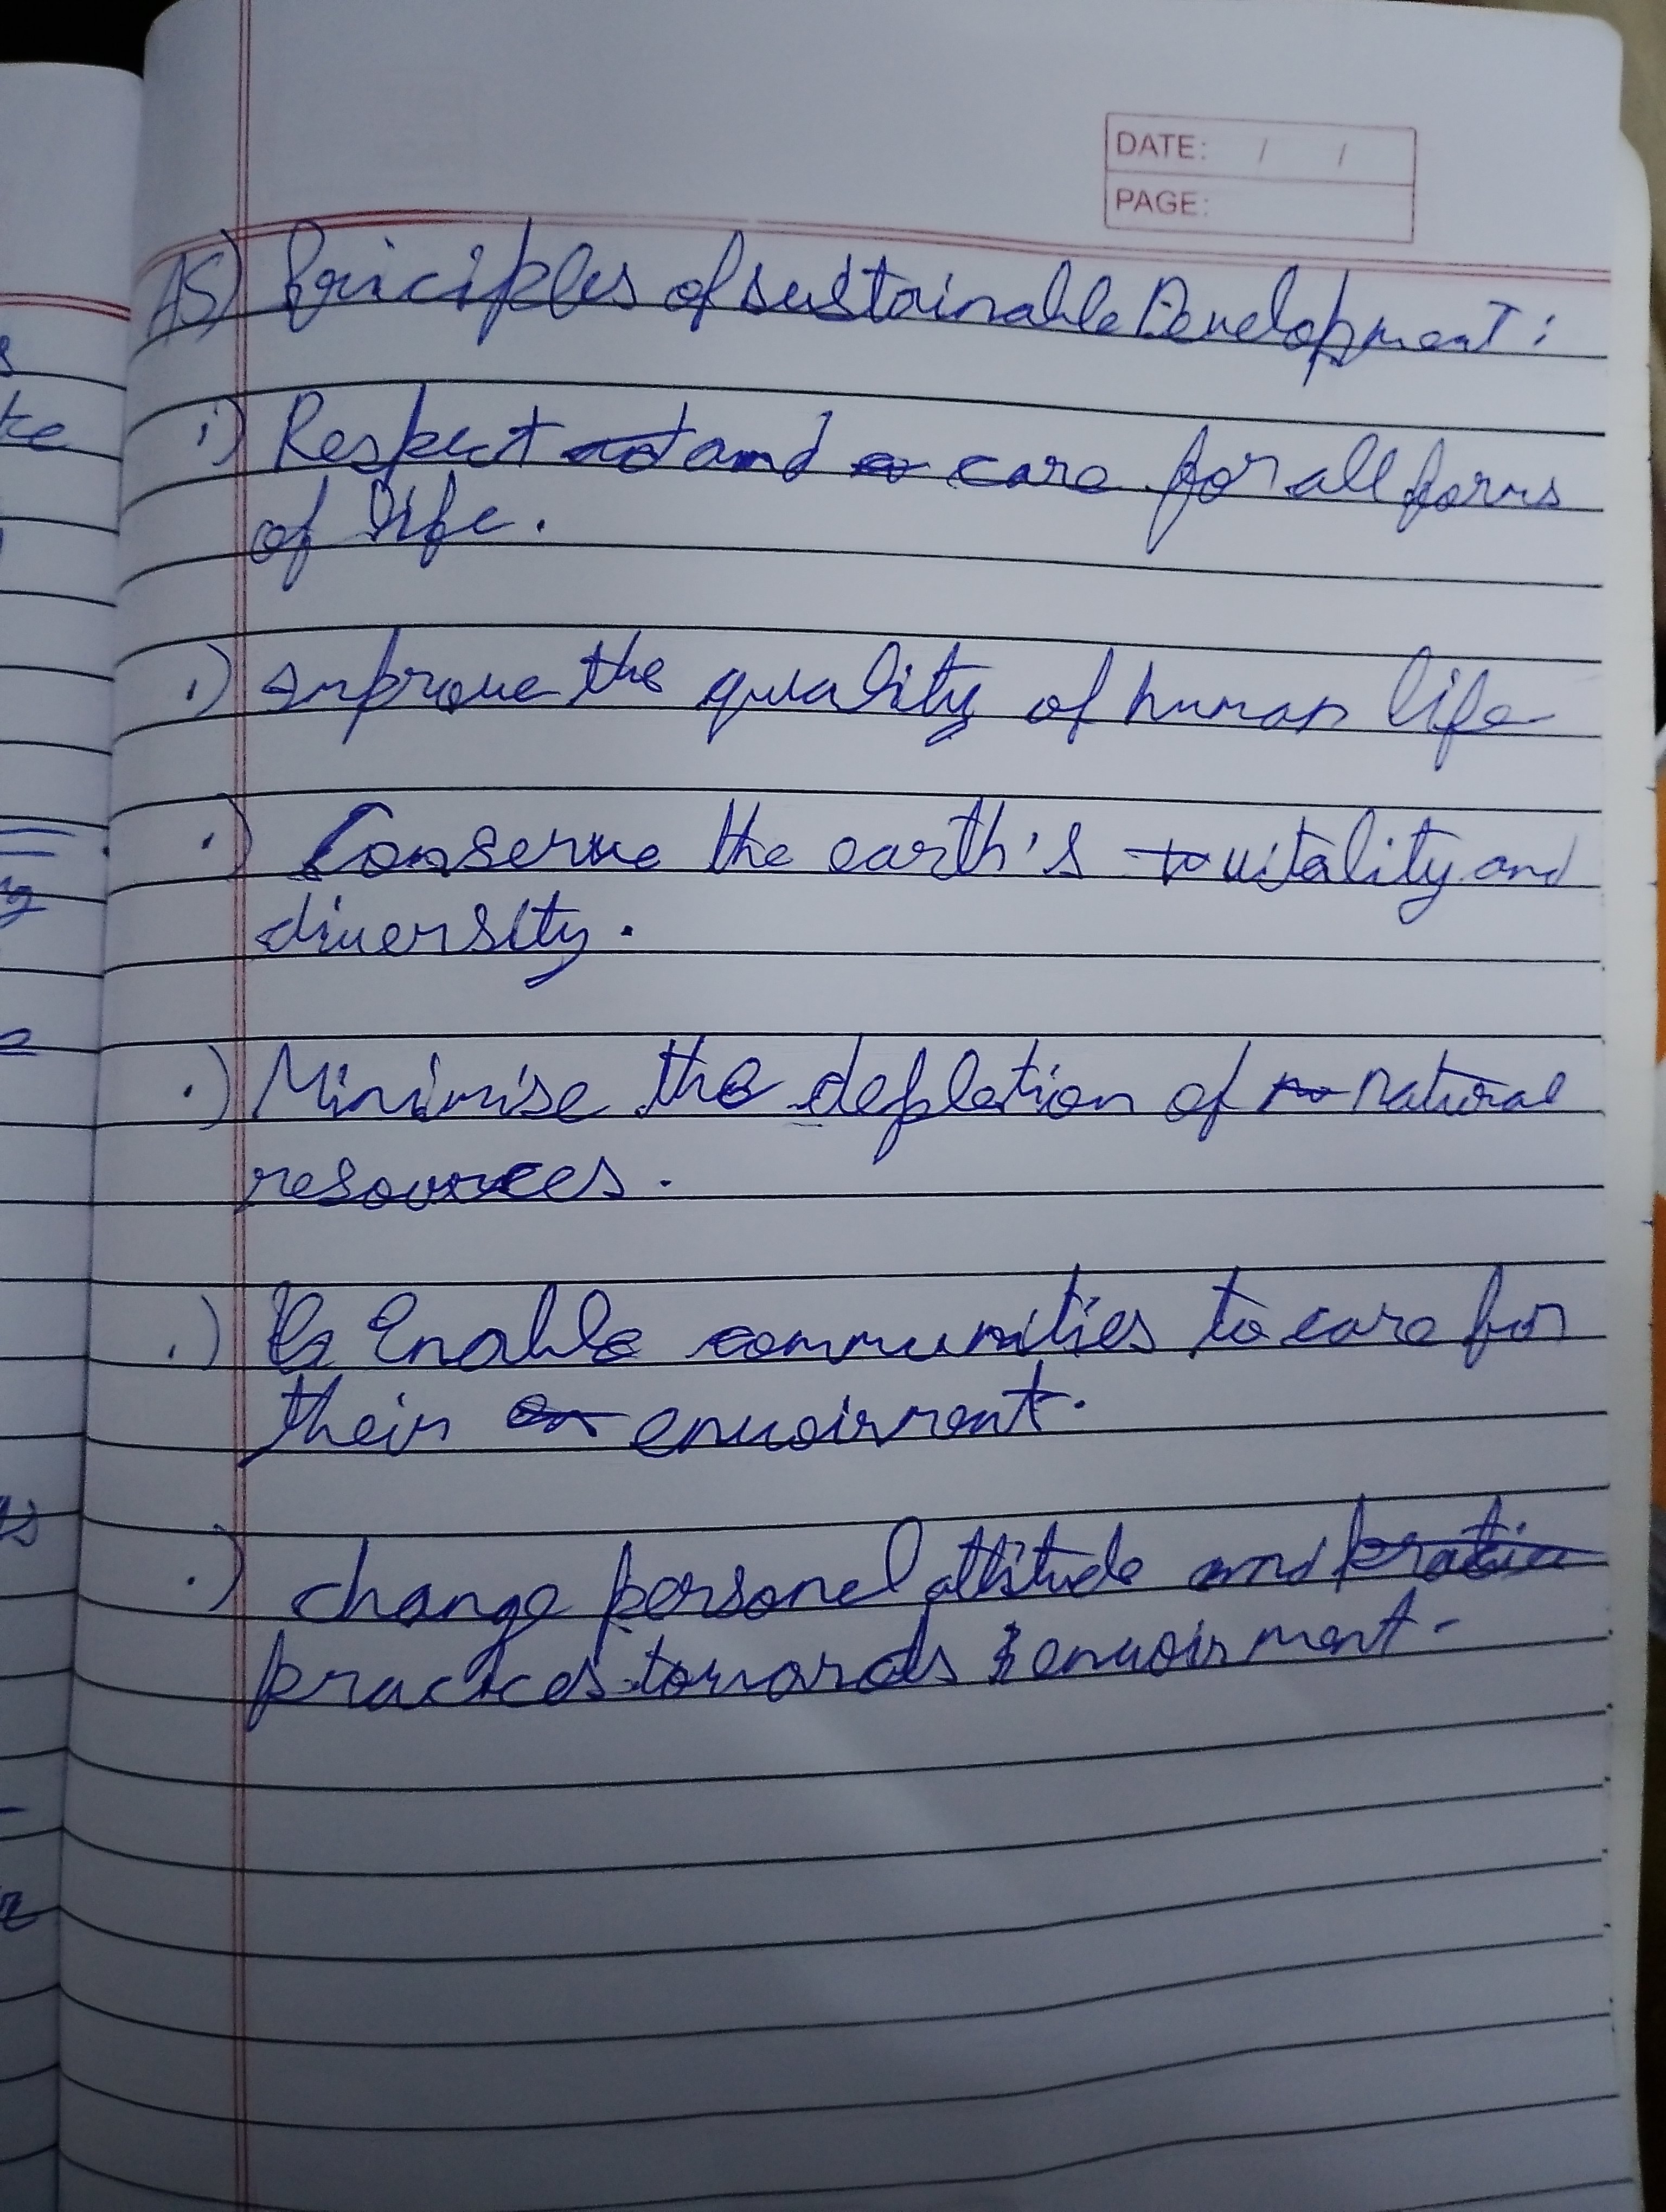 DATE: / /
PAGE:
A5) Priciples of sustainable Development :
i) Respect and care for all forms
of life.
.) Improve the quality of human life
.) Conserve the earth's vitality and
diversity.
.) Minimise the depletion of natural
resources.
.) Enable communities to care for
their envoirment.
.) change personel attitude and
practices towards envoirment.